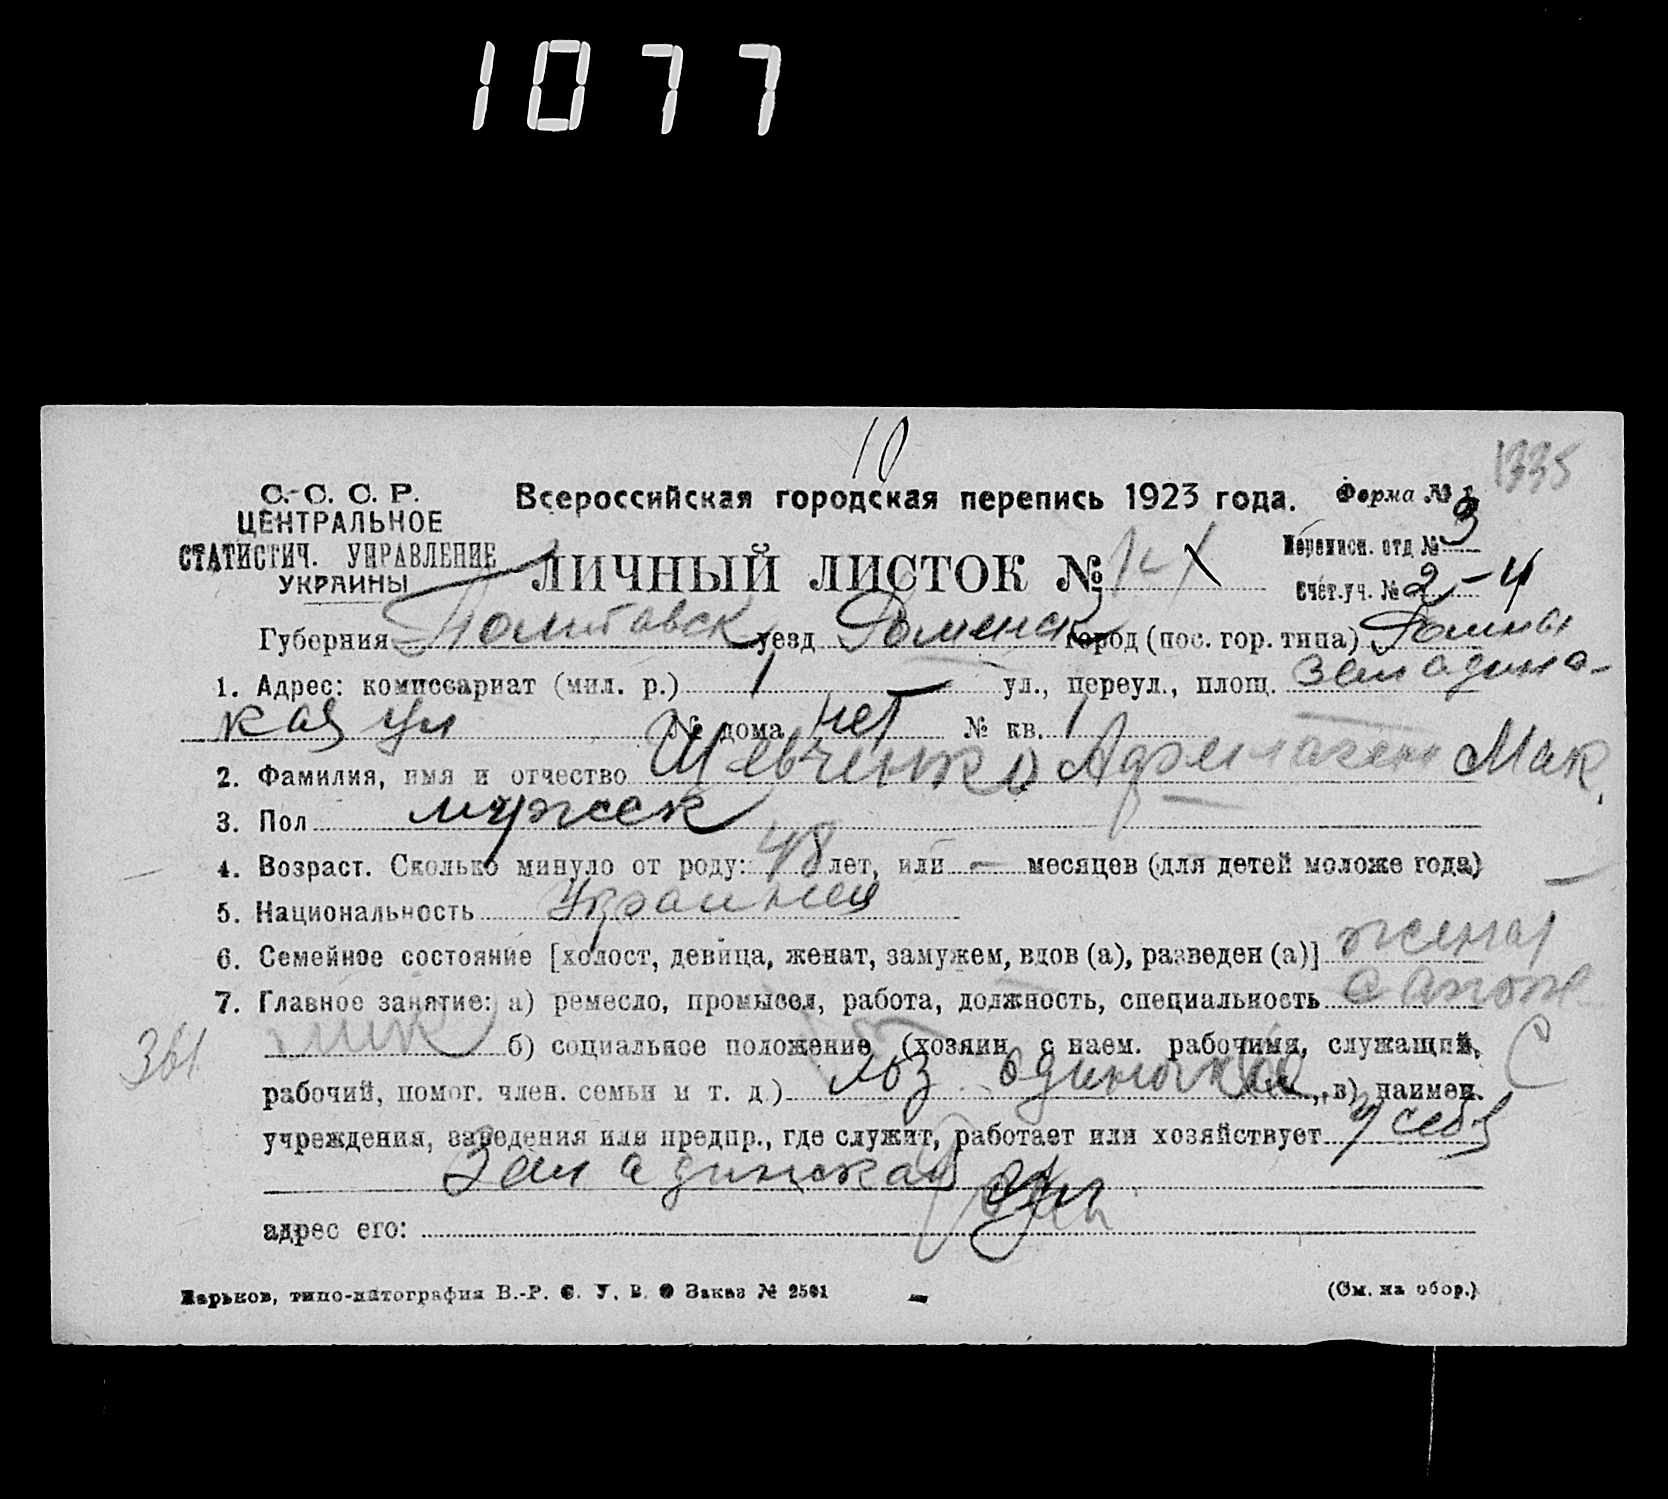 1077
10
1335
С.-С. С. Р.
ЦЕНТРАЛЬНОЕ
СТАТИСТИЧ. УПРАВЛЕНИЕ
УКРАИНЫ
Всероссийская городская перепись 1923 года.
Форма № 1
ЛИЧНЫЙ ЛИСТОК №
Переписн. отд № 3
Счёт.уч. № 2-4
Губерния Полтавск уезд Роменск город (пос. гор. типа) Ромны
1. Адрес: комиссариат (мил. р.) 1 — ул., переул., площ.
кая ул № дома нет № кв. 1
2. Фамилия, имя и отчество Шевченко Мак.
3. Пол мужск
4. Возраст. Сколько минуло от роду: 48 лет, или — месяцев (для детей моложе года)
5. Национальность Украинец
6. Семейное состояние [холост, девица, женат, замужем, вдов (а), разведен (а)] женат
7. Главное занятие: а) ремесло, промысел, работа, должность, специальность сапож
ник б) социальное положение (хозяин с наем. рабочими, служащий, С
361
рабочий, помог. член. семьи и т. д.) хоз одиночка, в) наимен.
учреждения, заведения или предпр., где служит, работает или хозяйствует у себя
ул
адрес его:
Харьков, типо-литография В.-Р. С. У. В. О Заказ № 2501
(См. на обор.)